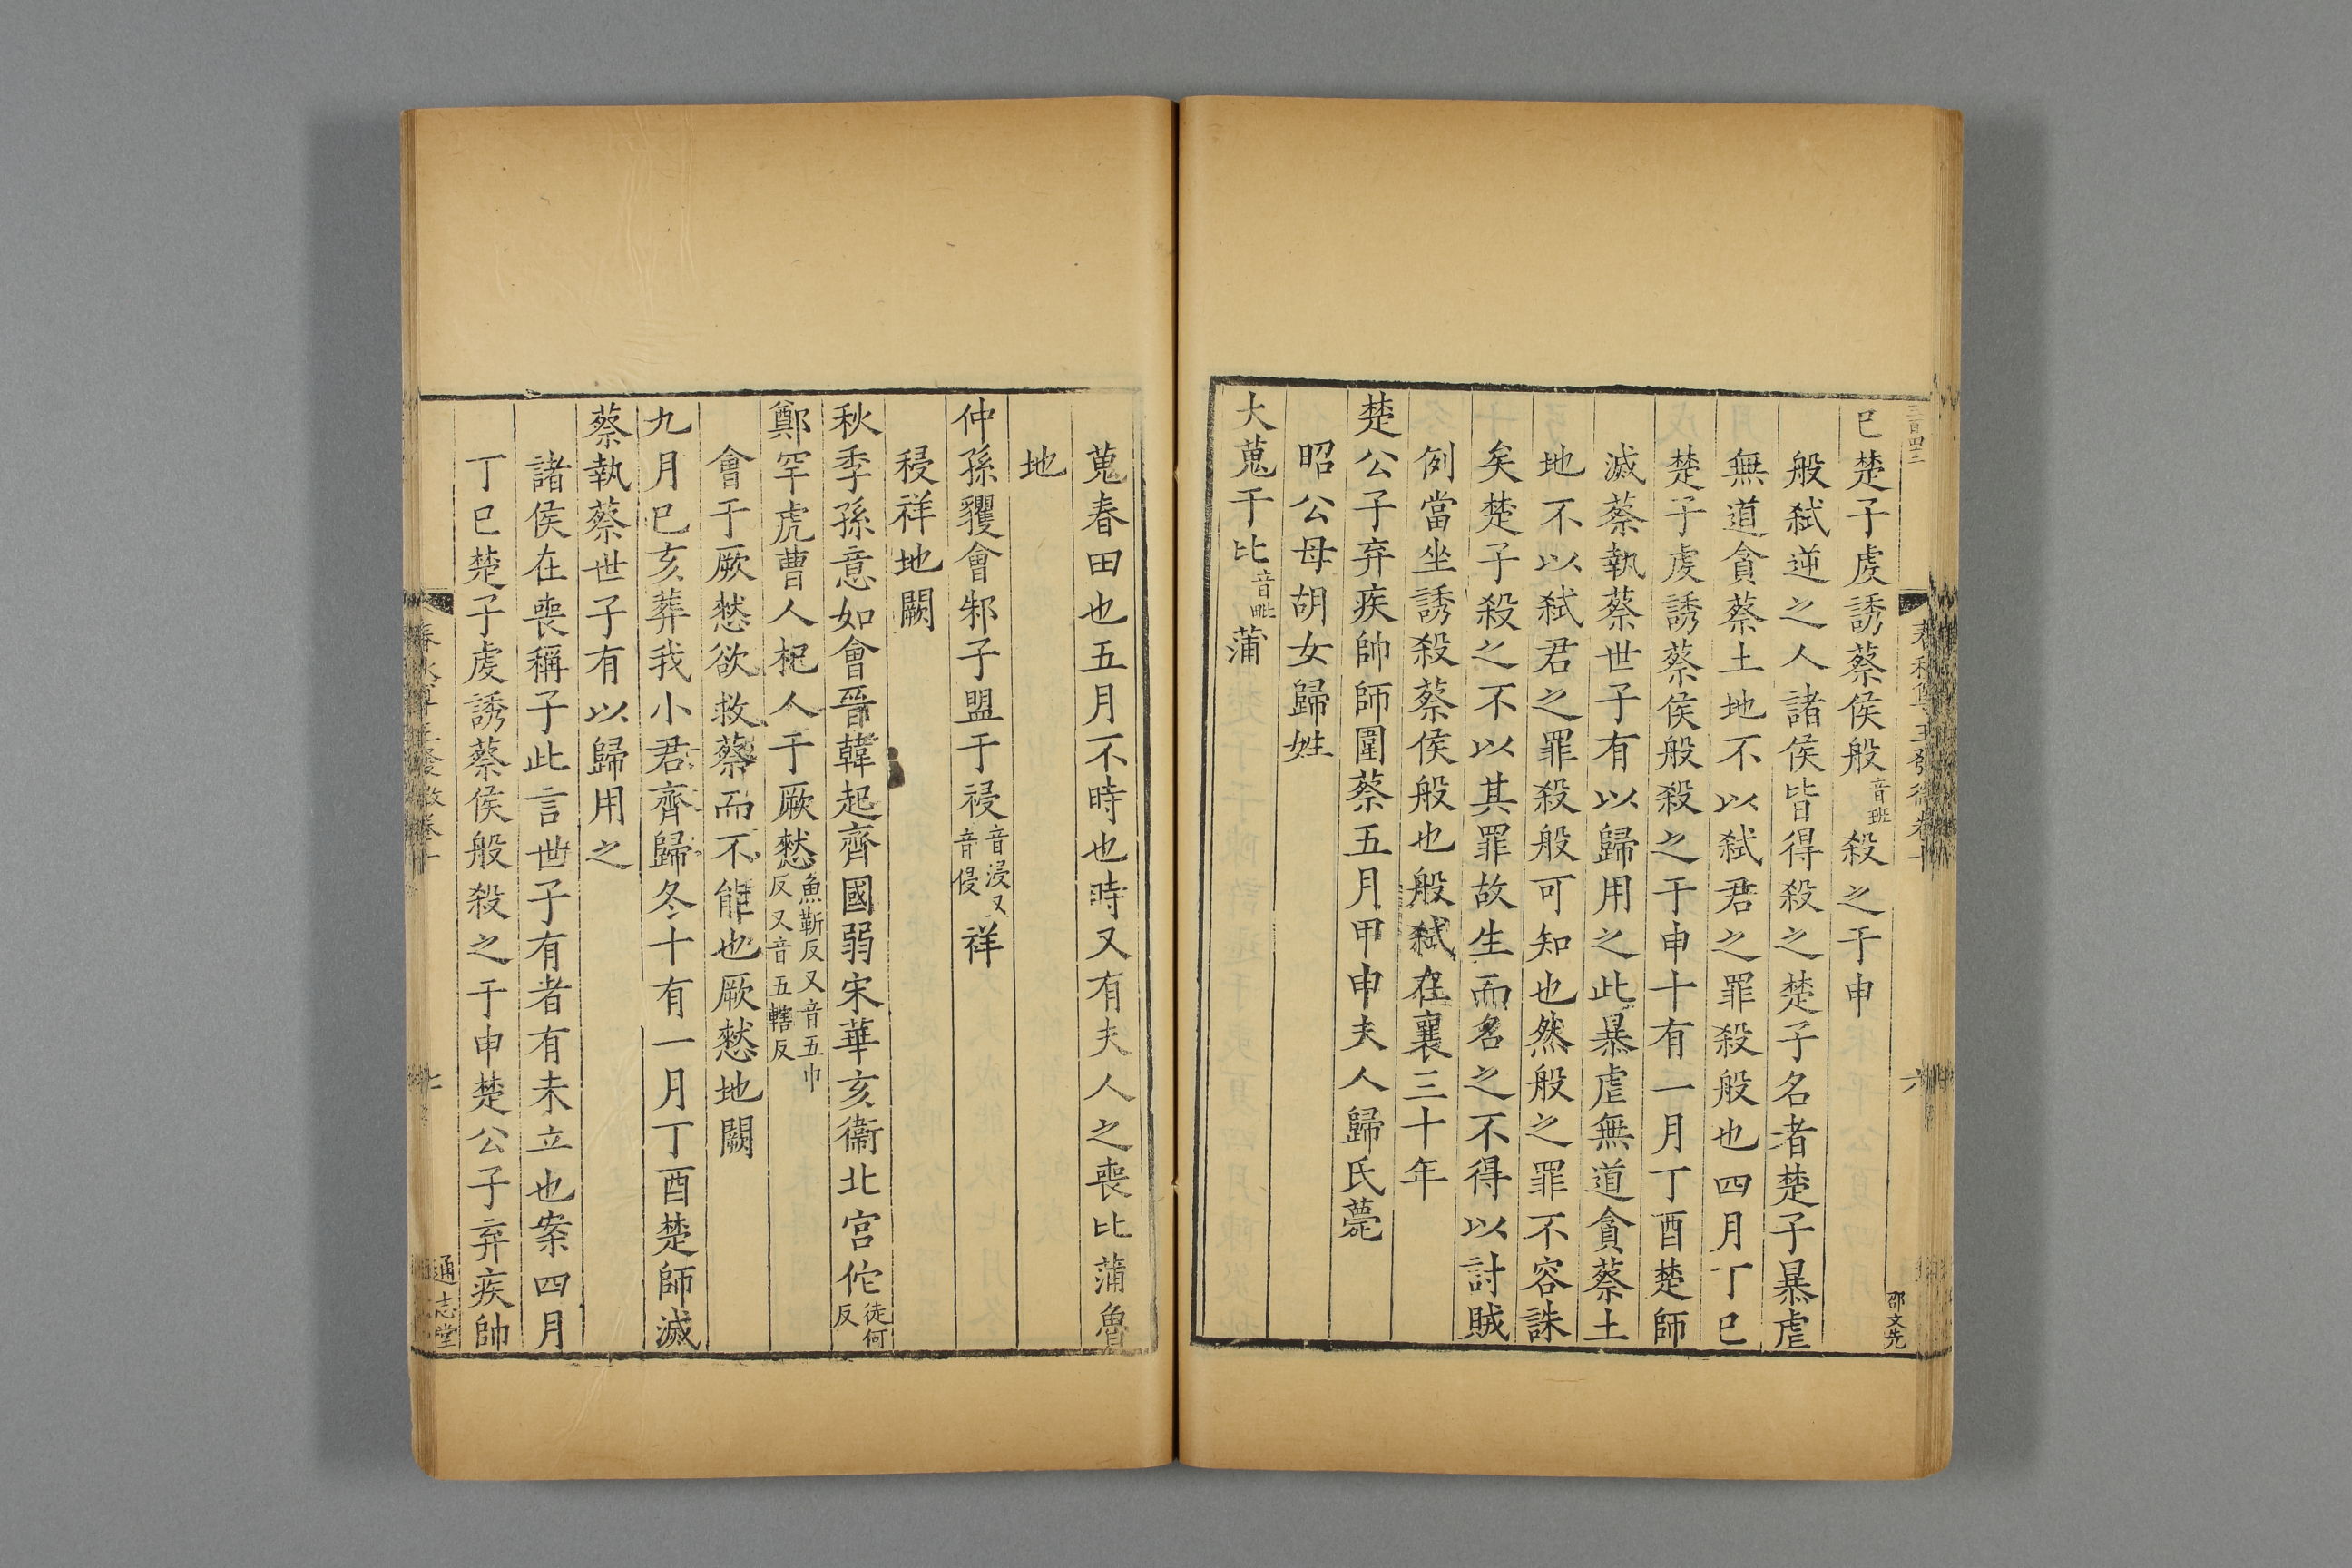 三百四十二
春秋尊王發微卷十
六
邵文先
巳楚子虔誘蔡侯般音班殺之于申
般弑逆之人諸侯皆得殺之楚子名者楚子暴虐
無道貪蔡土地不以弑君之罪殺般也四月丁巳
楚子虔誘蔡侯般殺之于申十有一月丁酉楚師
滅蔡執蔡世子有以歸用之此暴虐無道貪蔡土
地不以弑君之罪殺般可知也然般之罪不容誅
矣楚子殺之不以其罪故生而名之不得以討賊
例當坐誘殺蔡侯般也般弑在襄三十年
楚公子弃疾帥師圍蔡五月甲申夫人歸氏薨
昭公母胡女歸姓
大蒐于比音毗蒲
蒐春田也五月不時也時又有夫人之喪比蒲魯
地
仲孫貜會邾子盟于祲音浸又音侵祥
祲祥地闕
秋季孫意如會晉韓起齊國弱宋華亥衞北宮佗徒何反
鄭罕虎曹人杞人于厥憖魚靳反又音五巾反又音五轄反
會于厥憖欲救蔡而不能也厥憖地闕
九月巳亥葬我小君齊歸冬十有一月丁酉楚師滅
蔡執蔡世子有以歸用之
諸侯在喪稱子此言世子有者有未立也案四月
丁巳楚子虔誘蔡侯般殺之于申楚公子弃疾帥
春秋尊王發微卷十
七
通志堂